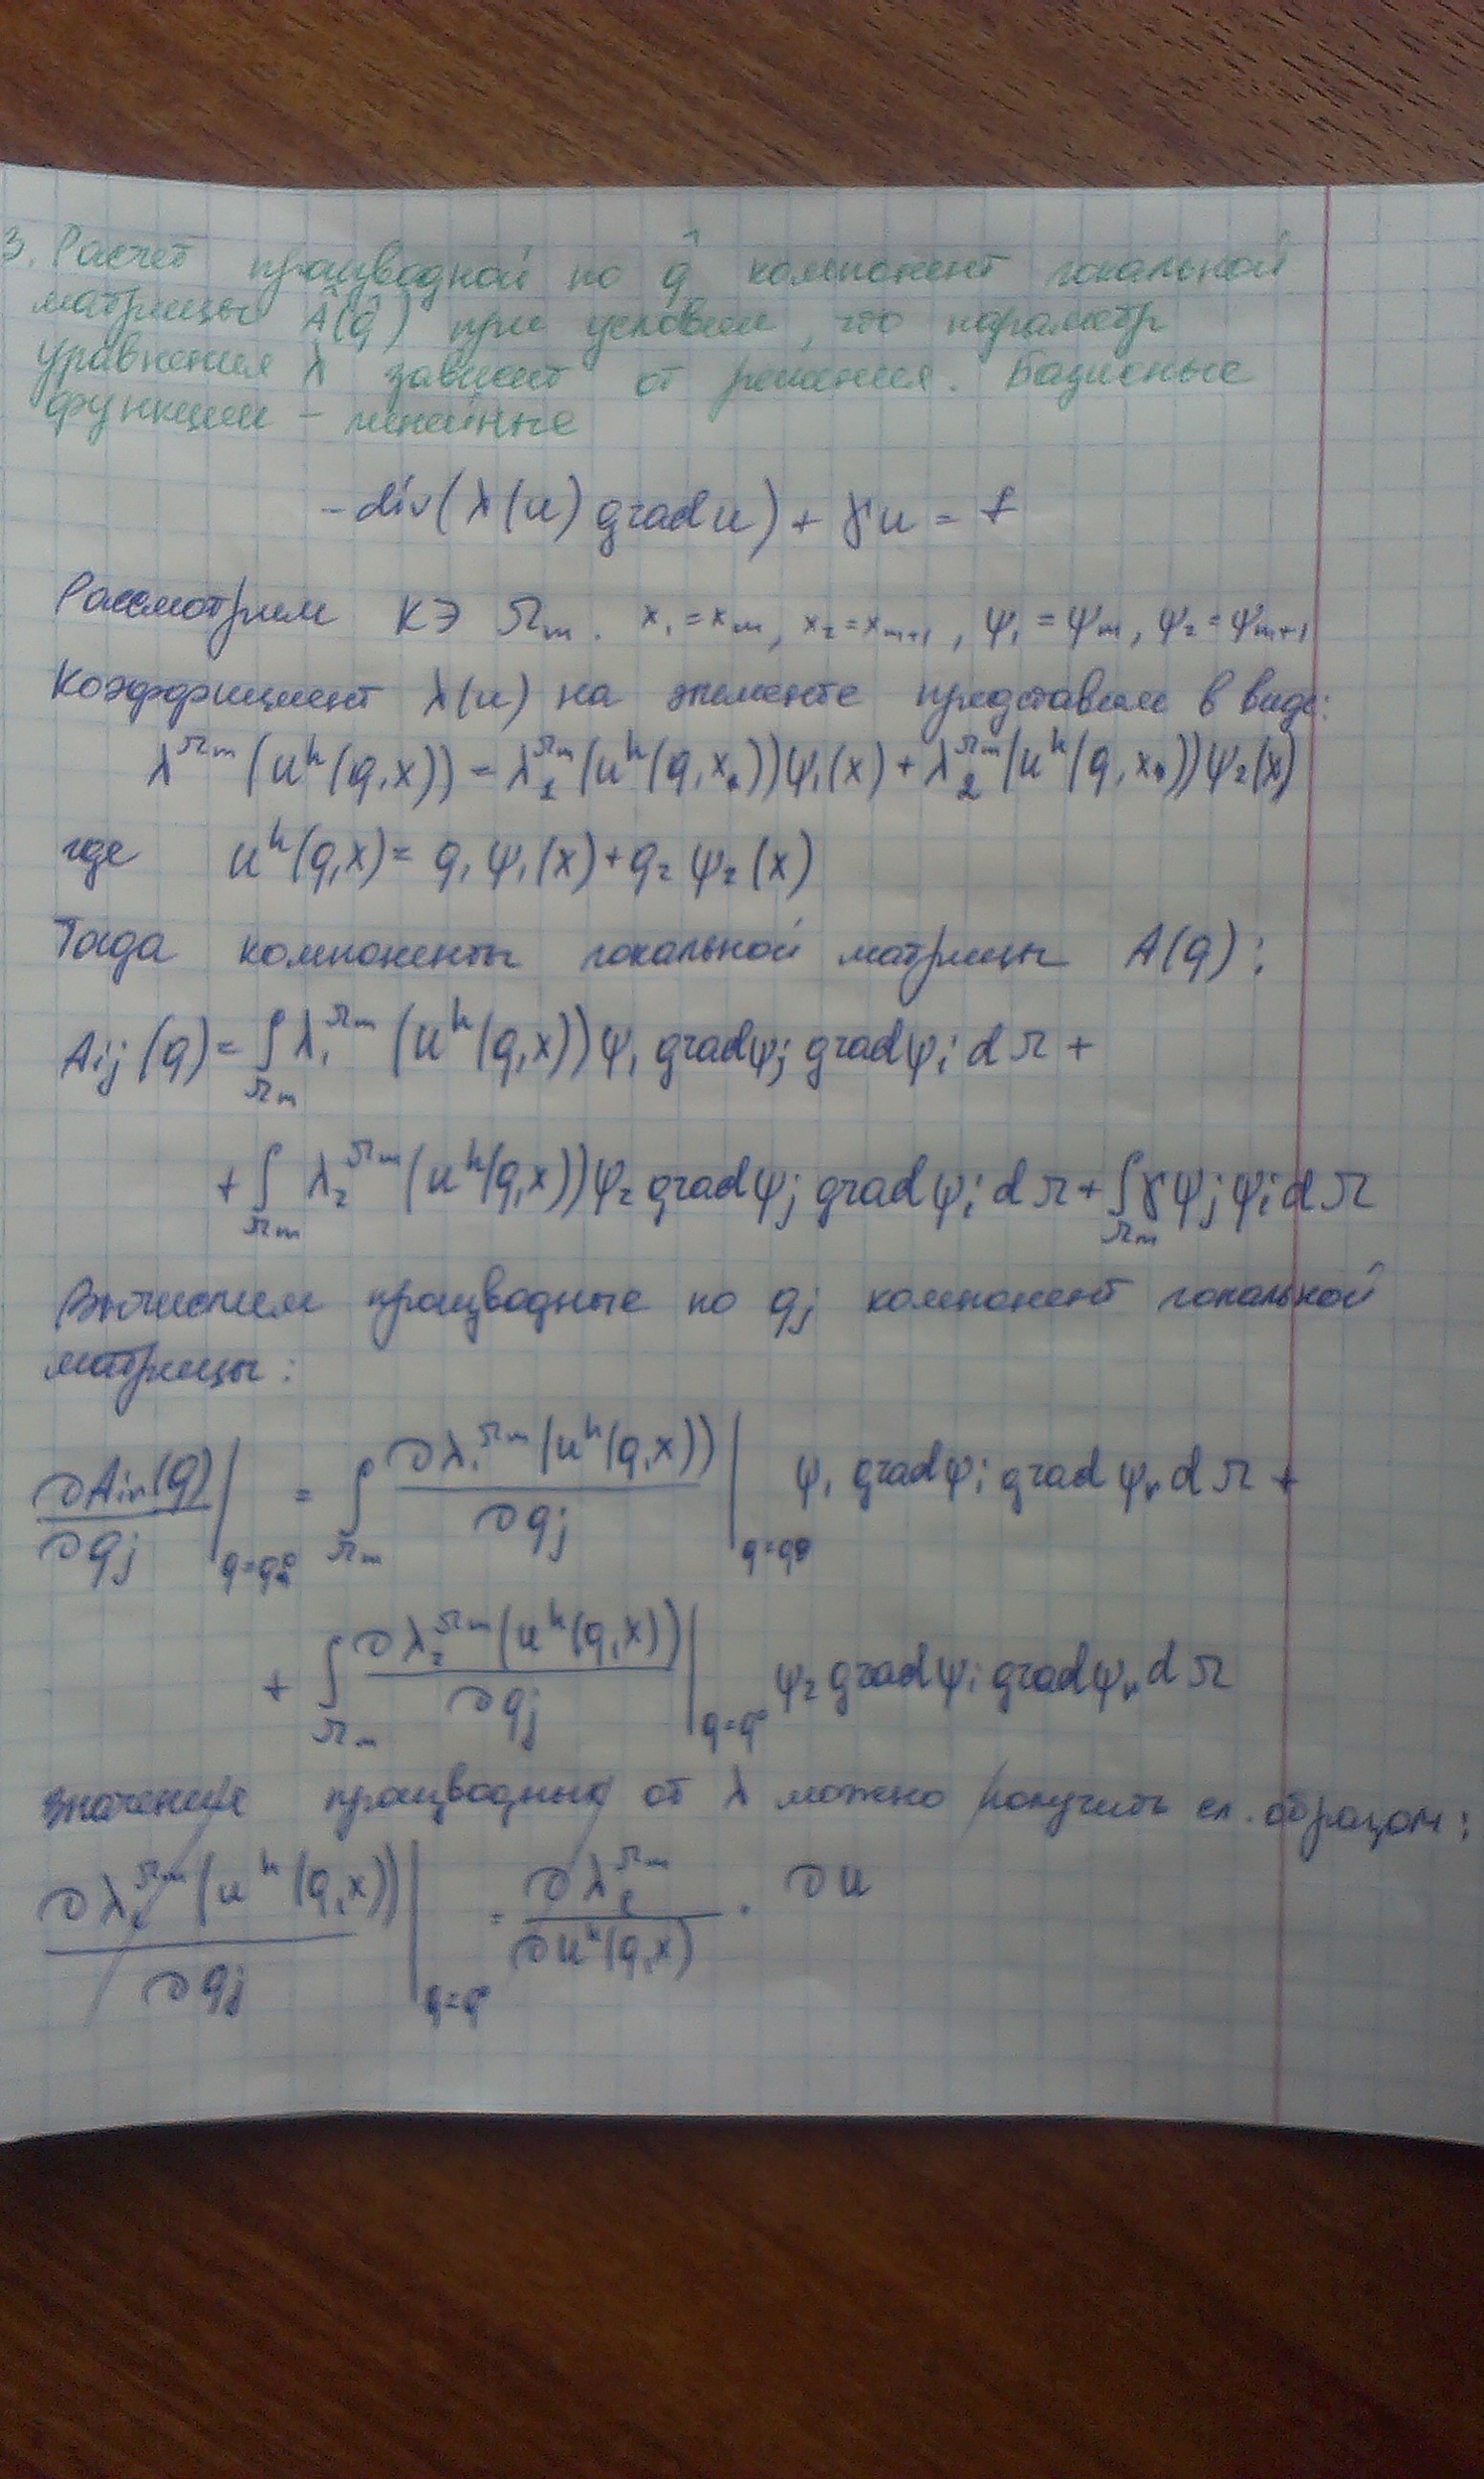 3. Расчет производной по q̂ компонент локальной
матрицы Â(q̂) при условии, что параметр
уравнения λ зависит от решения. Базисные
функции – линейные
-div(λ(u) grad u) + γu = f
Рассмотрим КЭ Ωₘ. x₁ = xₘ, x₂ = xₘ₊₁, ψ₁ = ψₘ, ψ₂ = ψₘ₊₁
Коэффициент λ(u) на элементе представим в виде:
λ^Ωₘ (uʰ(q,x)) = λ₁^Ωₘ (uʰ(q,x))ψ₁(x) + λ₂^Ωₘ (uʰ(q,x))ψ₂(x)
где uʰ(q,x) = q₁ψ₁(x) + q₂ψ₂(x)
Тогда компоненты локальной матрицы A(q):
Aij(q) = ∫_Ωₘ λ₁^Ωₘ (uʰ(q,x))ψ₁ gradψj gradψi dΩ +
+ ∫_Ωₘ λ₂^Ωₘ (uʰ(q,x))ψ₂ gradψj gradψi dΩ + ∫_Ωₘ γψjψi dΩ
Вычислим производные по qj компонент локальной
матрицы:
∂Air(q)/∂qj |q=q⁰ = ∫_Ωₘ ∂λ₁^Ωₘ (uʰ(q,x))/∂qj |q=q⁰ ψ₁ gradψi gradψr dΩ +
+ ∫_Ωₘ ∂λ₂^Ωₘ (uʰ(q,x))/∂qj |q=q⁰ ψ₂ gradψi gradψr dΩ
Значение производных от λ можно получить сл. образом:
∂λ^Ωₘ (uʰ(q,x))/∂qj |q=q⁰ = ∂λ^Ωₘ/∂uʰ(q,x) · ∂u